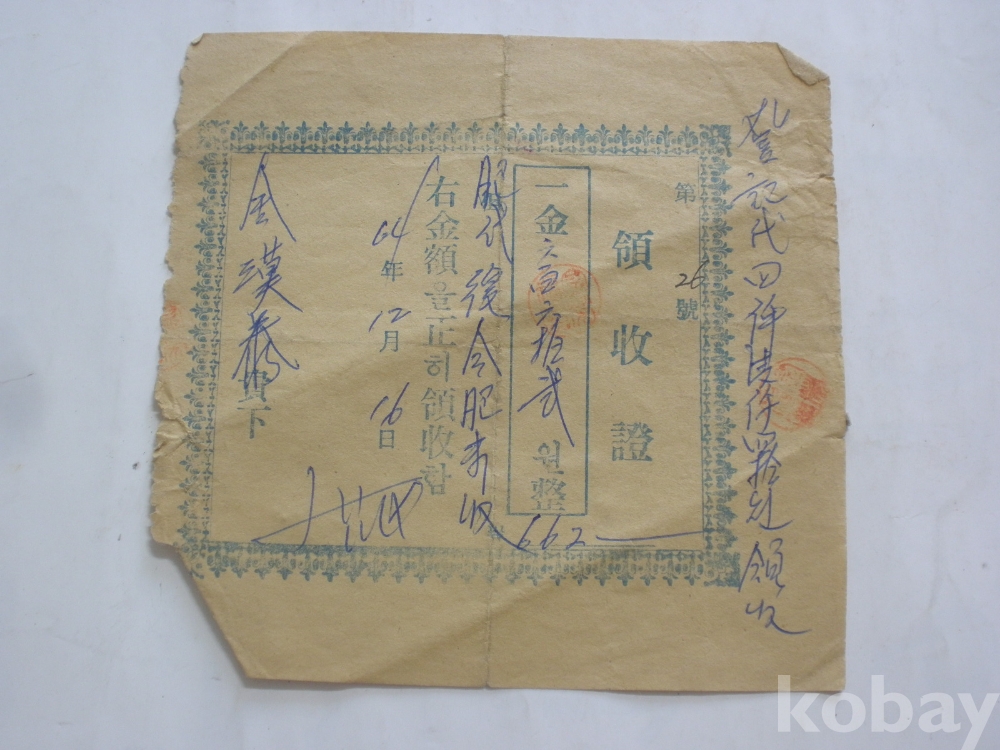 登記代四仟
領收
第26號
領收證
一金六百六拾弐원整
662
肥代後金肥未收
右金額을正히領收함
64年12月16日
金漢 貴下
kobay